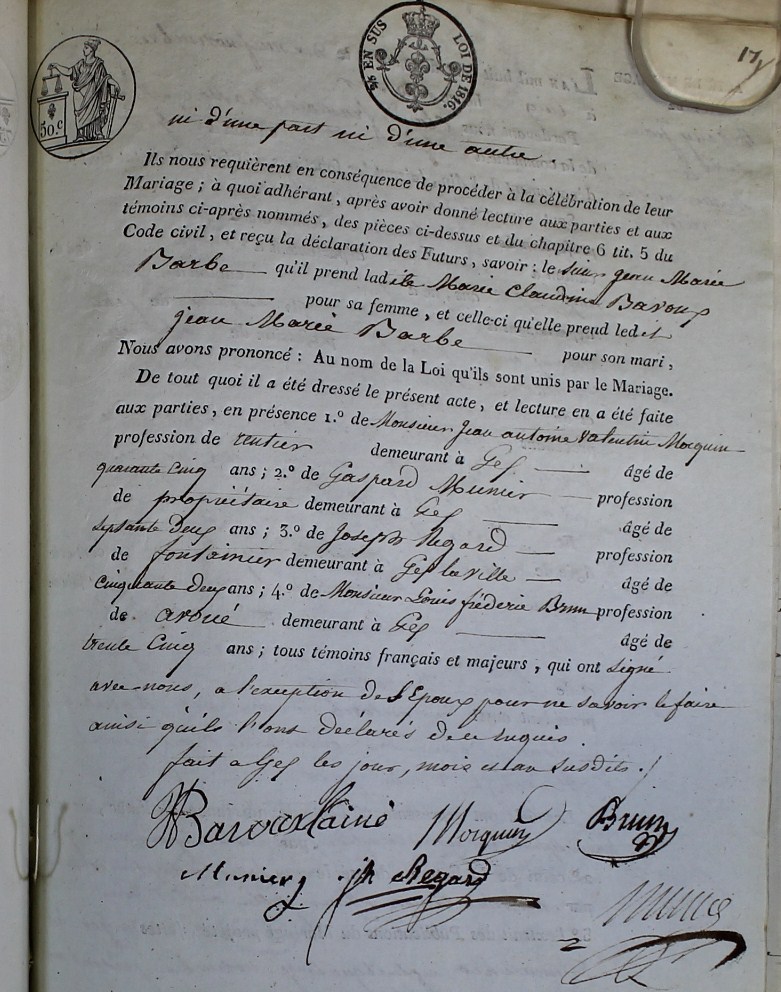 17
EN SUS LOI DE 1816.
50.c
ni d'une part ni d'une autre.
Ils nous requièrent en conséquence de procéder à la célébration de leur
Mariage ; à quoi adhérant, après avoir donné lecture aux parties et aux
témoins ci-après nommés, des pièces ci-dessus et du chapitre 6 tit. 5 du
Code civil, et reçu la déclaration des Futurs, savoir : le sieur jean Marie
Barbe qu'il prend ladite Marie Claudine Baroux
pour sa femme, et celle-ci qu'elle prend ledit
jean Marie Barbe pour son mari,
Nous avons prononcé : Au nom de la Loi qu'ils sont unis par le Mariage.
De tout quoi il a été dressé le présent acte, et lecture en a été faite
aux parties, en présence 1.º de Monsieur Jean antoine Valentin Morquin
profession de rentier demeurant à Gex âgé de
quarante Cinq ans ; 2.º de Gaspard Munier profession
de propriétaire demeurant à Gex âgé de
septante Deux ans ; 3.º de Joseph Regard profession
de fontainier demeurant à Gex la ville âgé de
Cinquante Deux ans ; 4.º de Monsieur Louis fréderic Brun profession
de avoué demeurant à Gex âgé de
trente Cinq ans ; tous témoins français et majeurs, qui ont signé
avec nous, a l'exception de l'Epoux pour ne savoir le faire
ainsi qu'ils l'ont déclarés de ce enquis.
fait a Gex les jour, mois et an susdits.
Baroux lainé Morquin Brun
Munier jh Regard